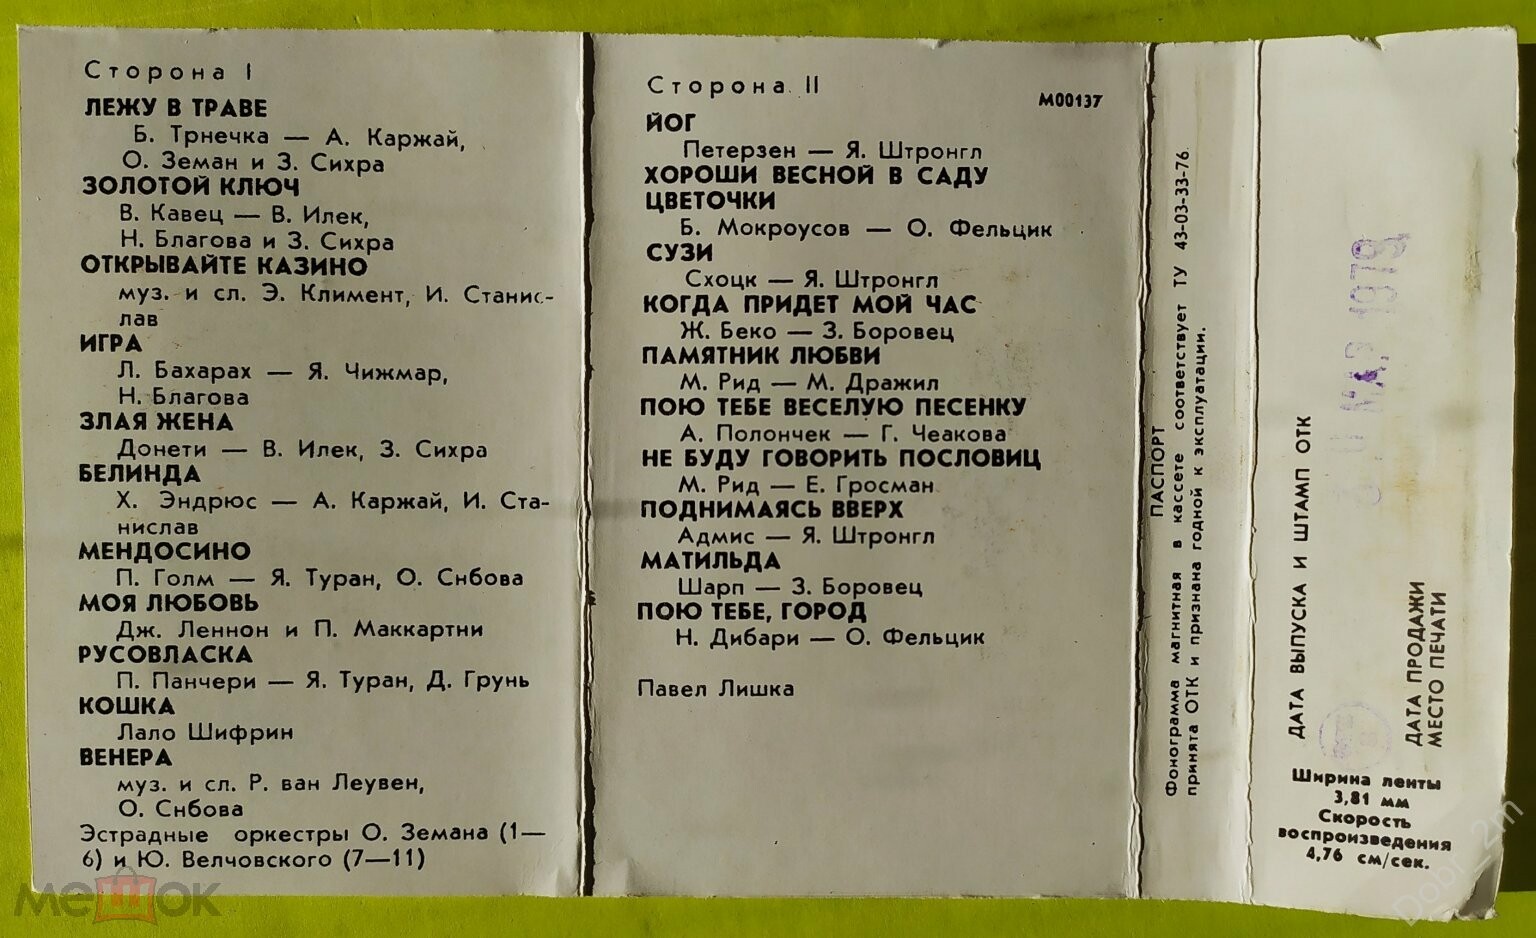 Сторона I
ЛЕЖУ В ТРАВЕ
Б. Трнечка — А. Каржай,
О. Земан и З. Сихра
ЗОЛОТОЙ КЛЮЧ
В. Кавец — В. Илек,
Н. Благова и З. Сихра
ОТКРЫВАЙТЕ КАЗИНО
муз. и сл. Э. Климент, И. Станис-
лав
ИГРА
Л. Бахарах — Я. Чижмар,
Н. Благова
ЗЛАЯ ЖЕНА
Донети — В. Илек, З. Сихра
БЕЛИНДА
Х. Эндрюс — А. Каржай, И. Ста-
нислав
МЕНДОСИНО
П. Голм — Я. Туран, О. Снбова
МОЯ ЛЮБОВЬ
Дж. Леннон и П. Маккартни
РУСОВЛАСКА
П. Панчери — Я. Туран, Д. Грунь
КОШКА
Лало Шифрин
ВЕНЕРА
муз. и сл. Р. ван Леувен,
О. Снбова
Эстрадные оркестры О. Земана (1—
6) и Ю. Велчовского (7—11)
Сторона II
М00137
ЙОГ
Петерзен — Я. Штронгл
ХОРОШИ ВЕСНОЙ В САДУ
ЦВЕТОЧКИ
Б. Мокроусов — О. Фельцик
СУЗИ
Схоцк — Я. Штронгл
КОГДА ПРИДЕТ МОЙ ЧАС
Ж. Беко — З. Боровец
ПАМЯТНИК ЛЮБВИ
М. Рид — М. Дражил
ПОЮ ТЕБЕ ВЕСЕЛУЮ ПЕСЕНКУ
А. Полончек — Г. Чеакова
НЕ БУДУ ГОВОРИТЬ ПОСЛОВИЦ
М. Рид — Е. Гросман
ПОДНИМАЯСЬ ВВЕРХ
Адмис — Я. Штронгл
МАТИЛЬДА
Шарп — З. Боровец
ПОЮ ТЕБЕ, ГОРОД
Н. Дибари — О. Фельцик
Павел Лишка
ПАСПОРТ
Фонограмма магнитная в кассете соответствует ТУ 43-03-33-76
принята ОТК и признана годной к эксплуатации.
ДАТА ВЫПУСКА И ШТАМП ОТК
МАР 1979
ДАТА ПРОДАЖИ
МЕСТО ПЕЧАТИ
Ширина ленты
3,81 мм
Скорость
воспроизведения
4,76 см/сек.
мешок
Dobr_2m